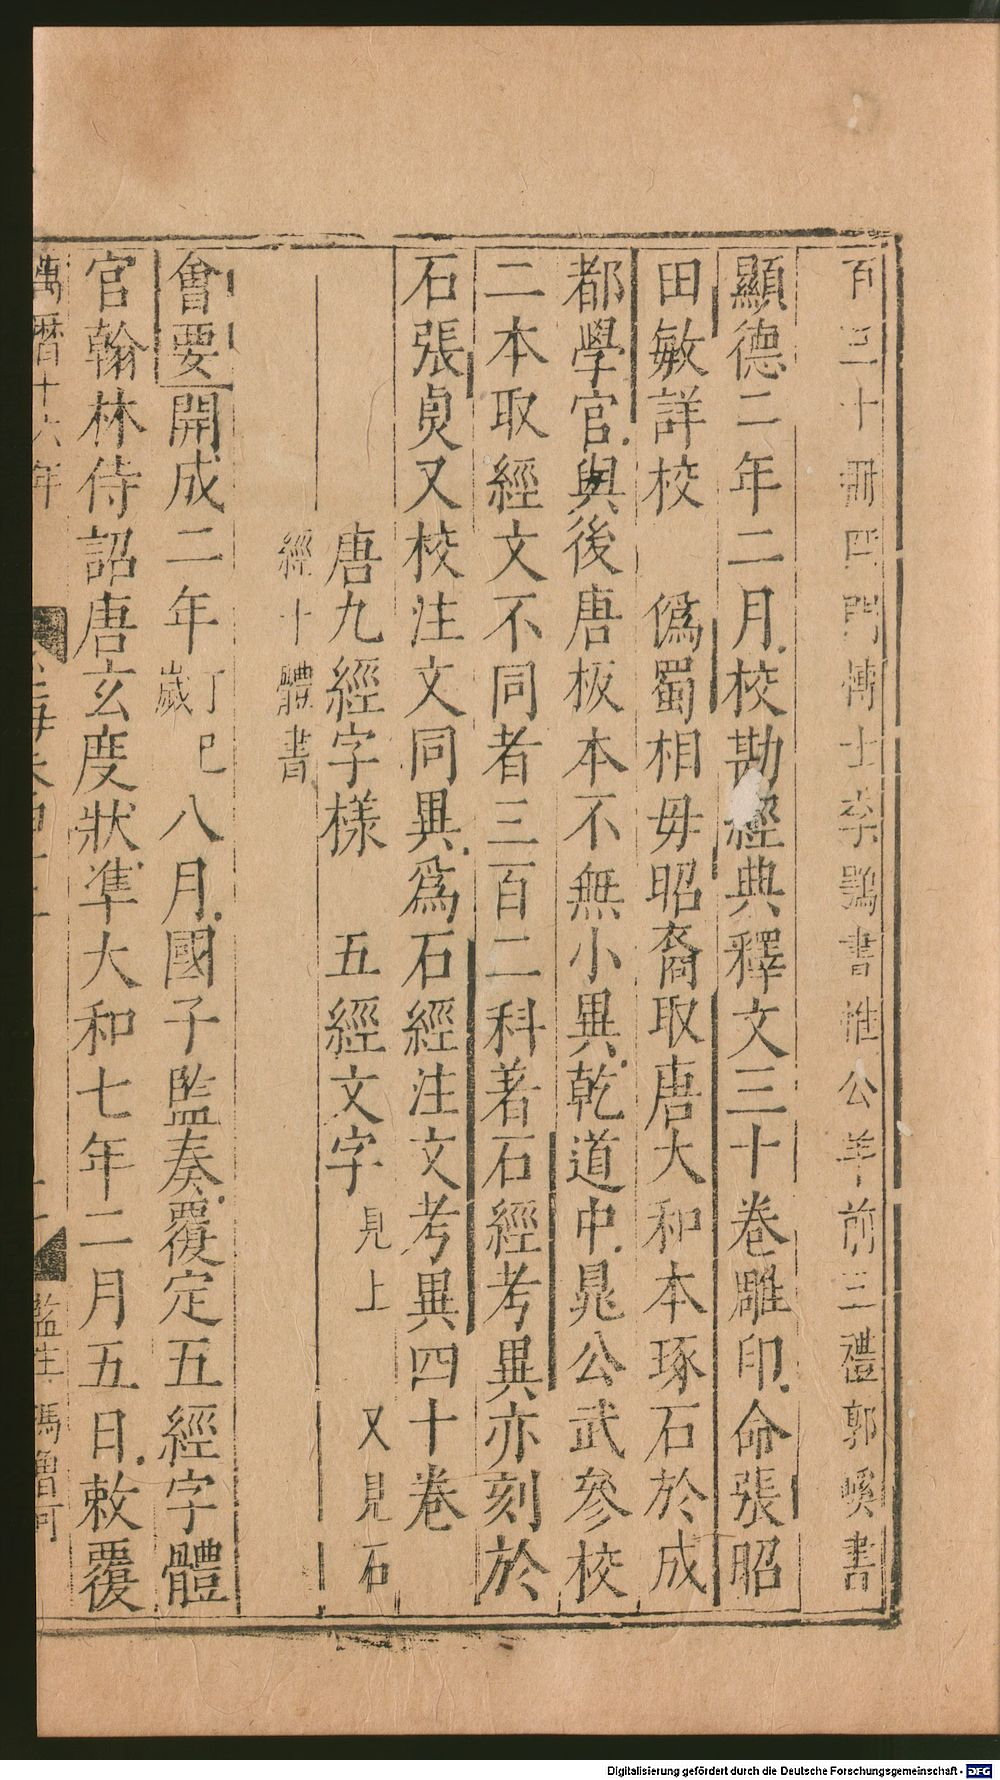 百三十冊四門博士李鶚書惟公羊前三禮郭嵠書
顯德二年二月校勘經典釋文三十卷雕印命張昭
田敏詳校　僞蜀相毋昭裔取唐大和本琢石於成
都學官與後唐板本不無小異乾道中晁公武參校
二本取經文不同者三百二科著石經考異亦刻於
石張㒹又校注文同異爲石經注文考異四十卷
唐九經字樣　五經文字見上　又見石
經十體書
會要開成二年丁巳歲八月國子監奏覆定五經字體
官翰林待詔唐玄度狀準大和七年二月五日敕覆
萬曆十六年
監生馮魯訶
Digitalisierung gefördert durch die Deutsche Forschungsgemeinschaft - DFG